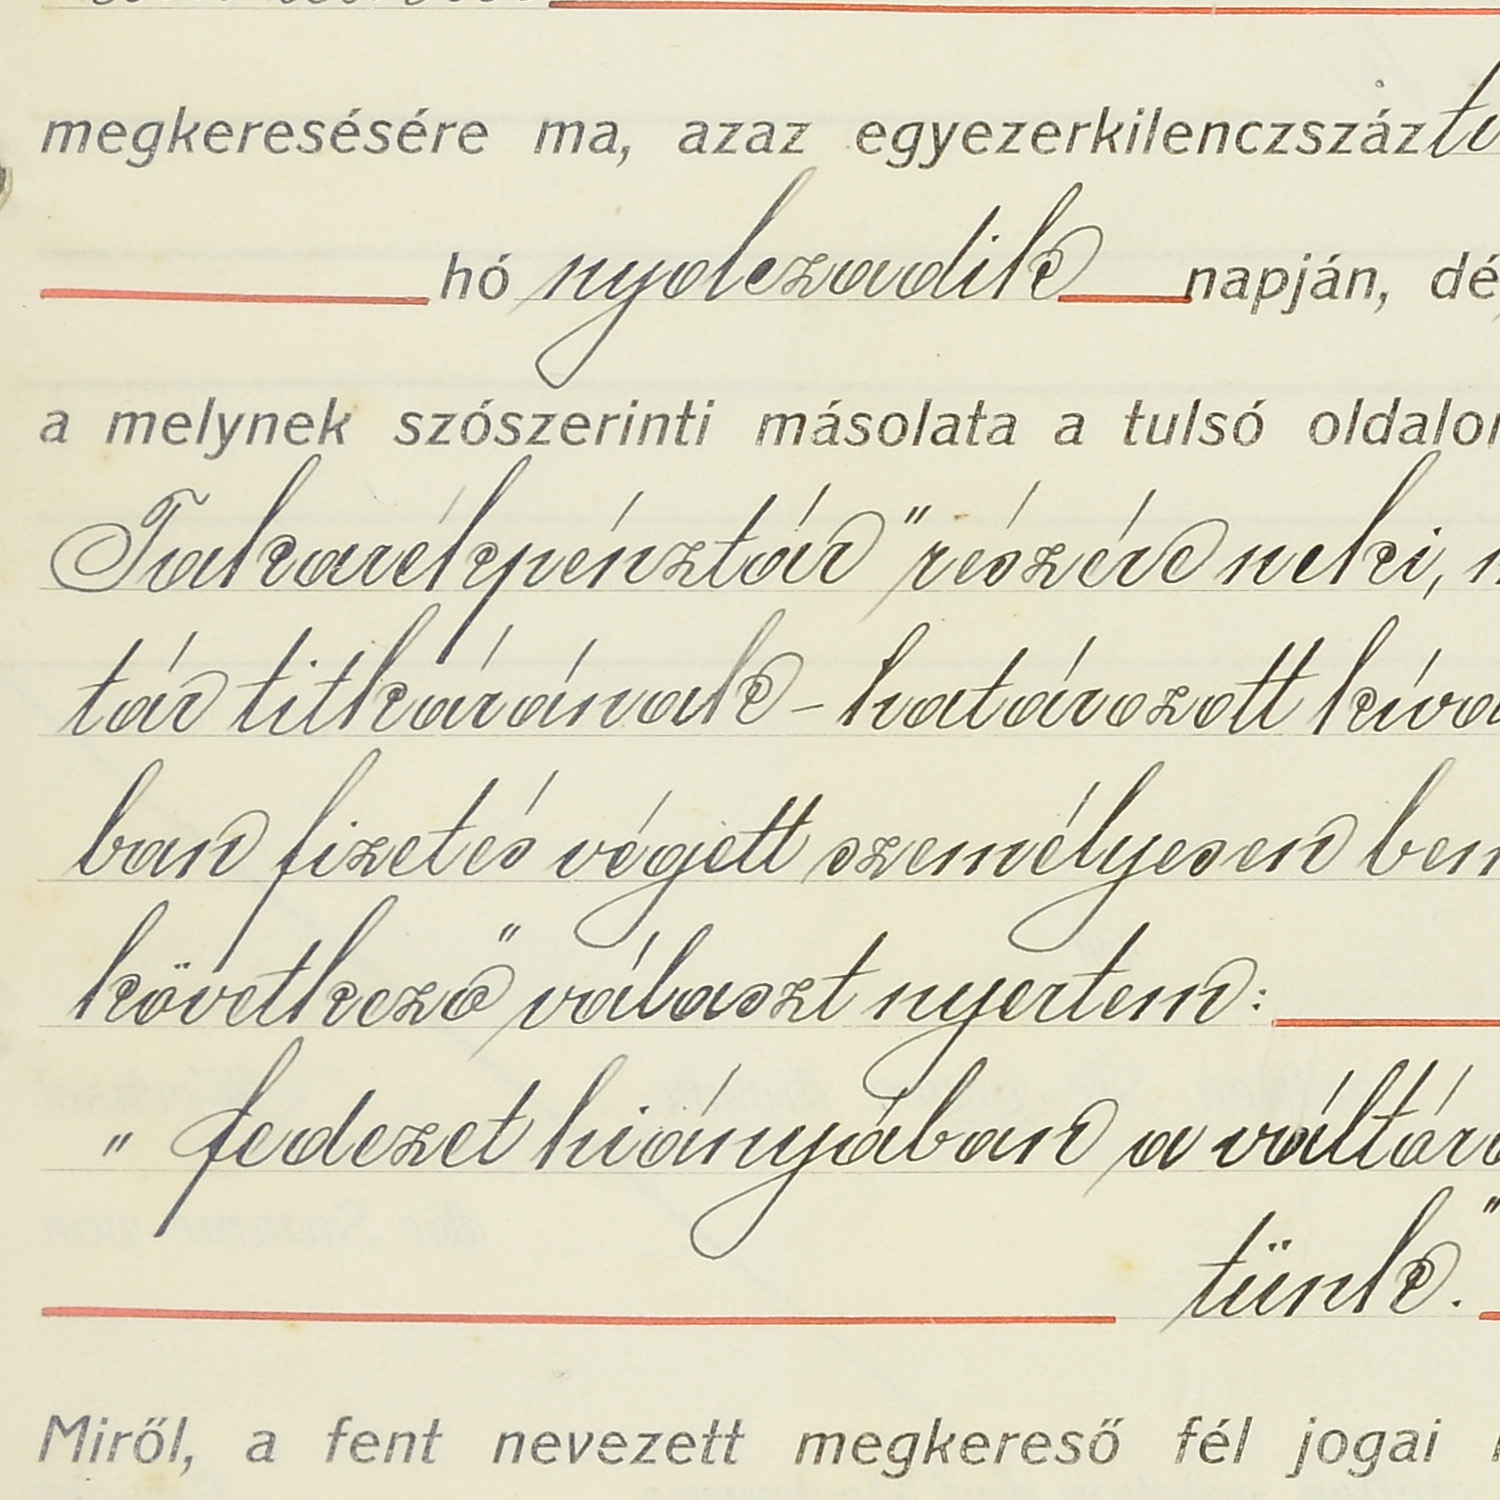 megkeresésére ma, azaz egyezerkilenczszáz
hó nyolczadik napján, dé
a melynek szószerinti másolata a tulsó oldalon
Takarékpénztár" részére neki,
tár titkárának - határozott kíva
ban fizetés végett személyesen bem
következő választ nyertem:
" fedezet hiányában a váltóra
tünk."
Miről, a fent nevezett megkereső fél jogai